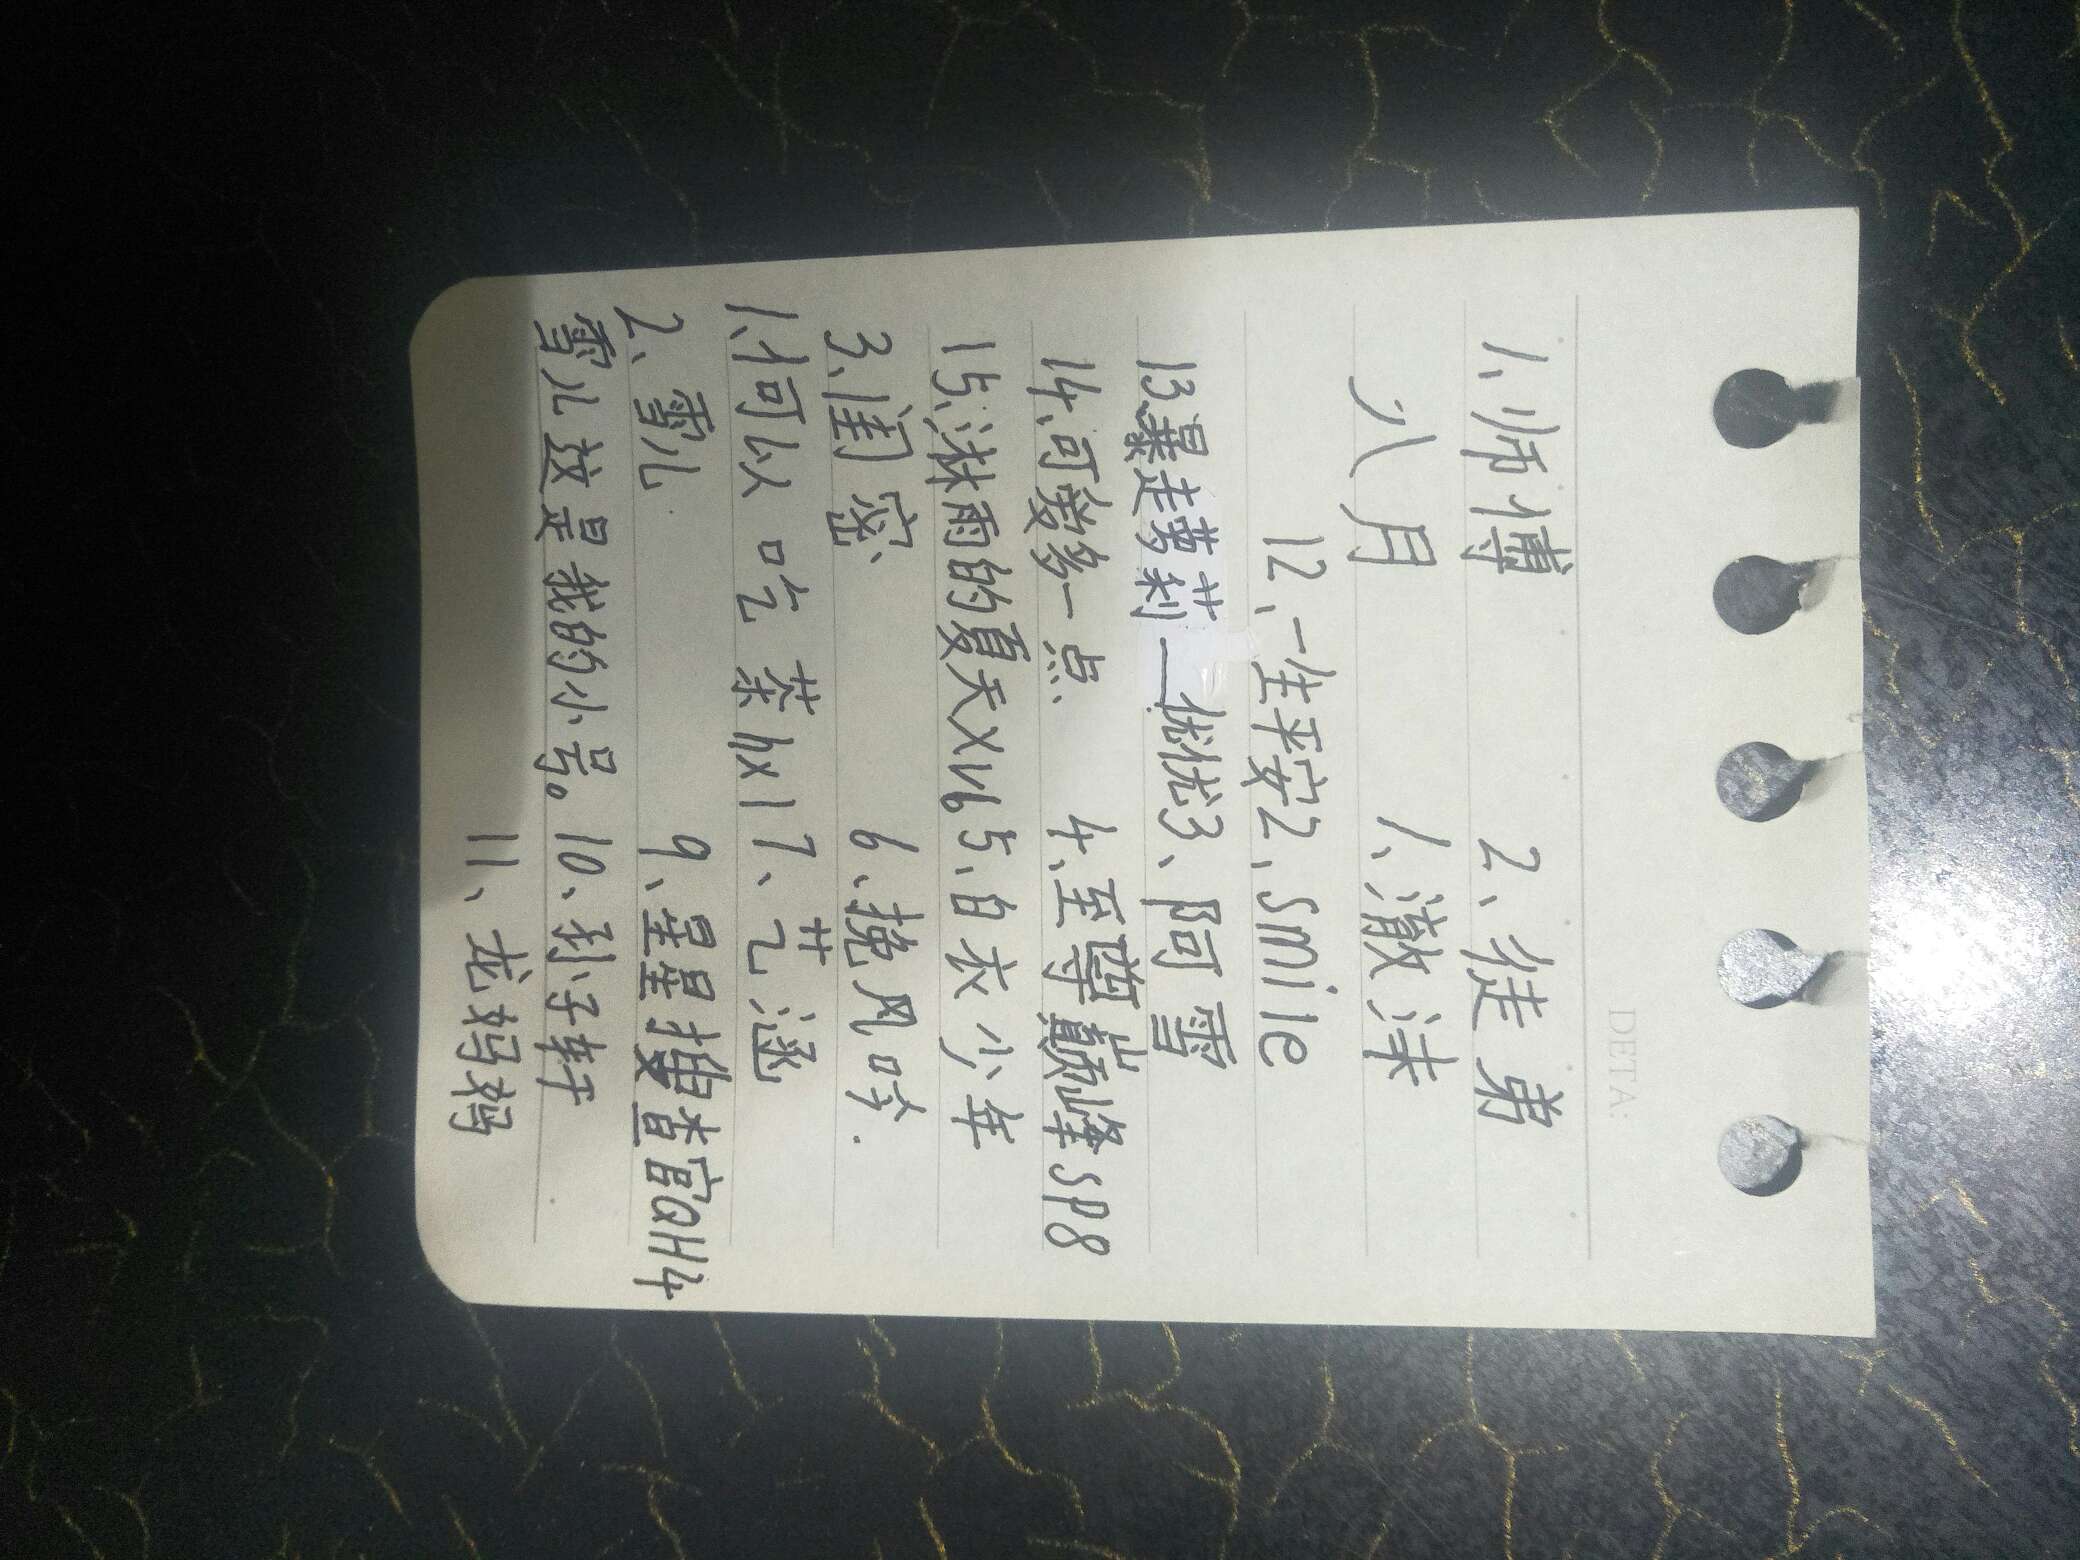 DETA:
1、师傅 2、徒弟
八月 1、澈沫
12、一生平安 2、smile
13、暴走萝莉—优优 3、阿雪
14、可爱多一点 4、至尊巅峰SP8
15、淋雨的夏天XL6 5、白衣少年
3、闺密、 6、挽风吟.
1、何以吃茶hx1 7、艺涵
2、雪儿 9、星星搜查官QH4
雪儿这是我的小号。 10、利子轩
11、龙妈妈